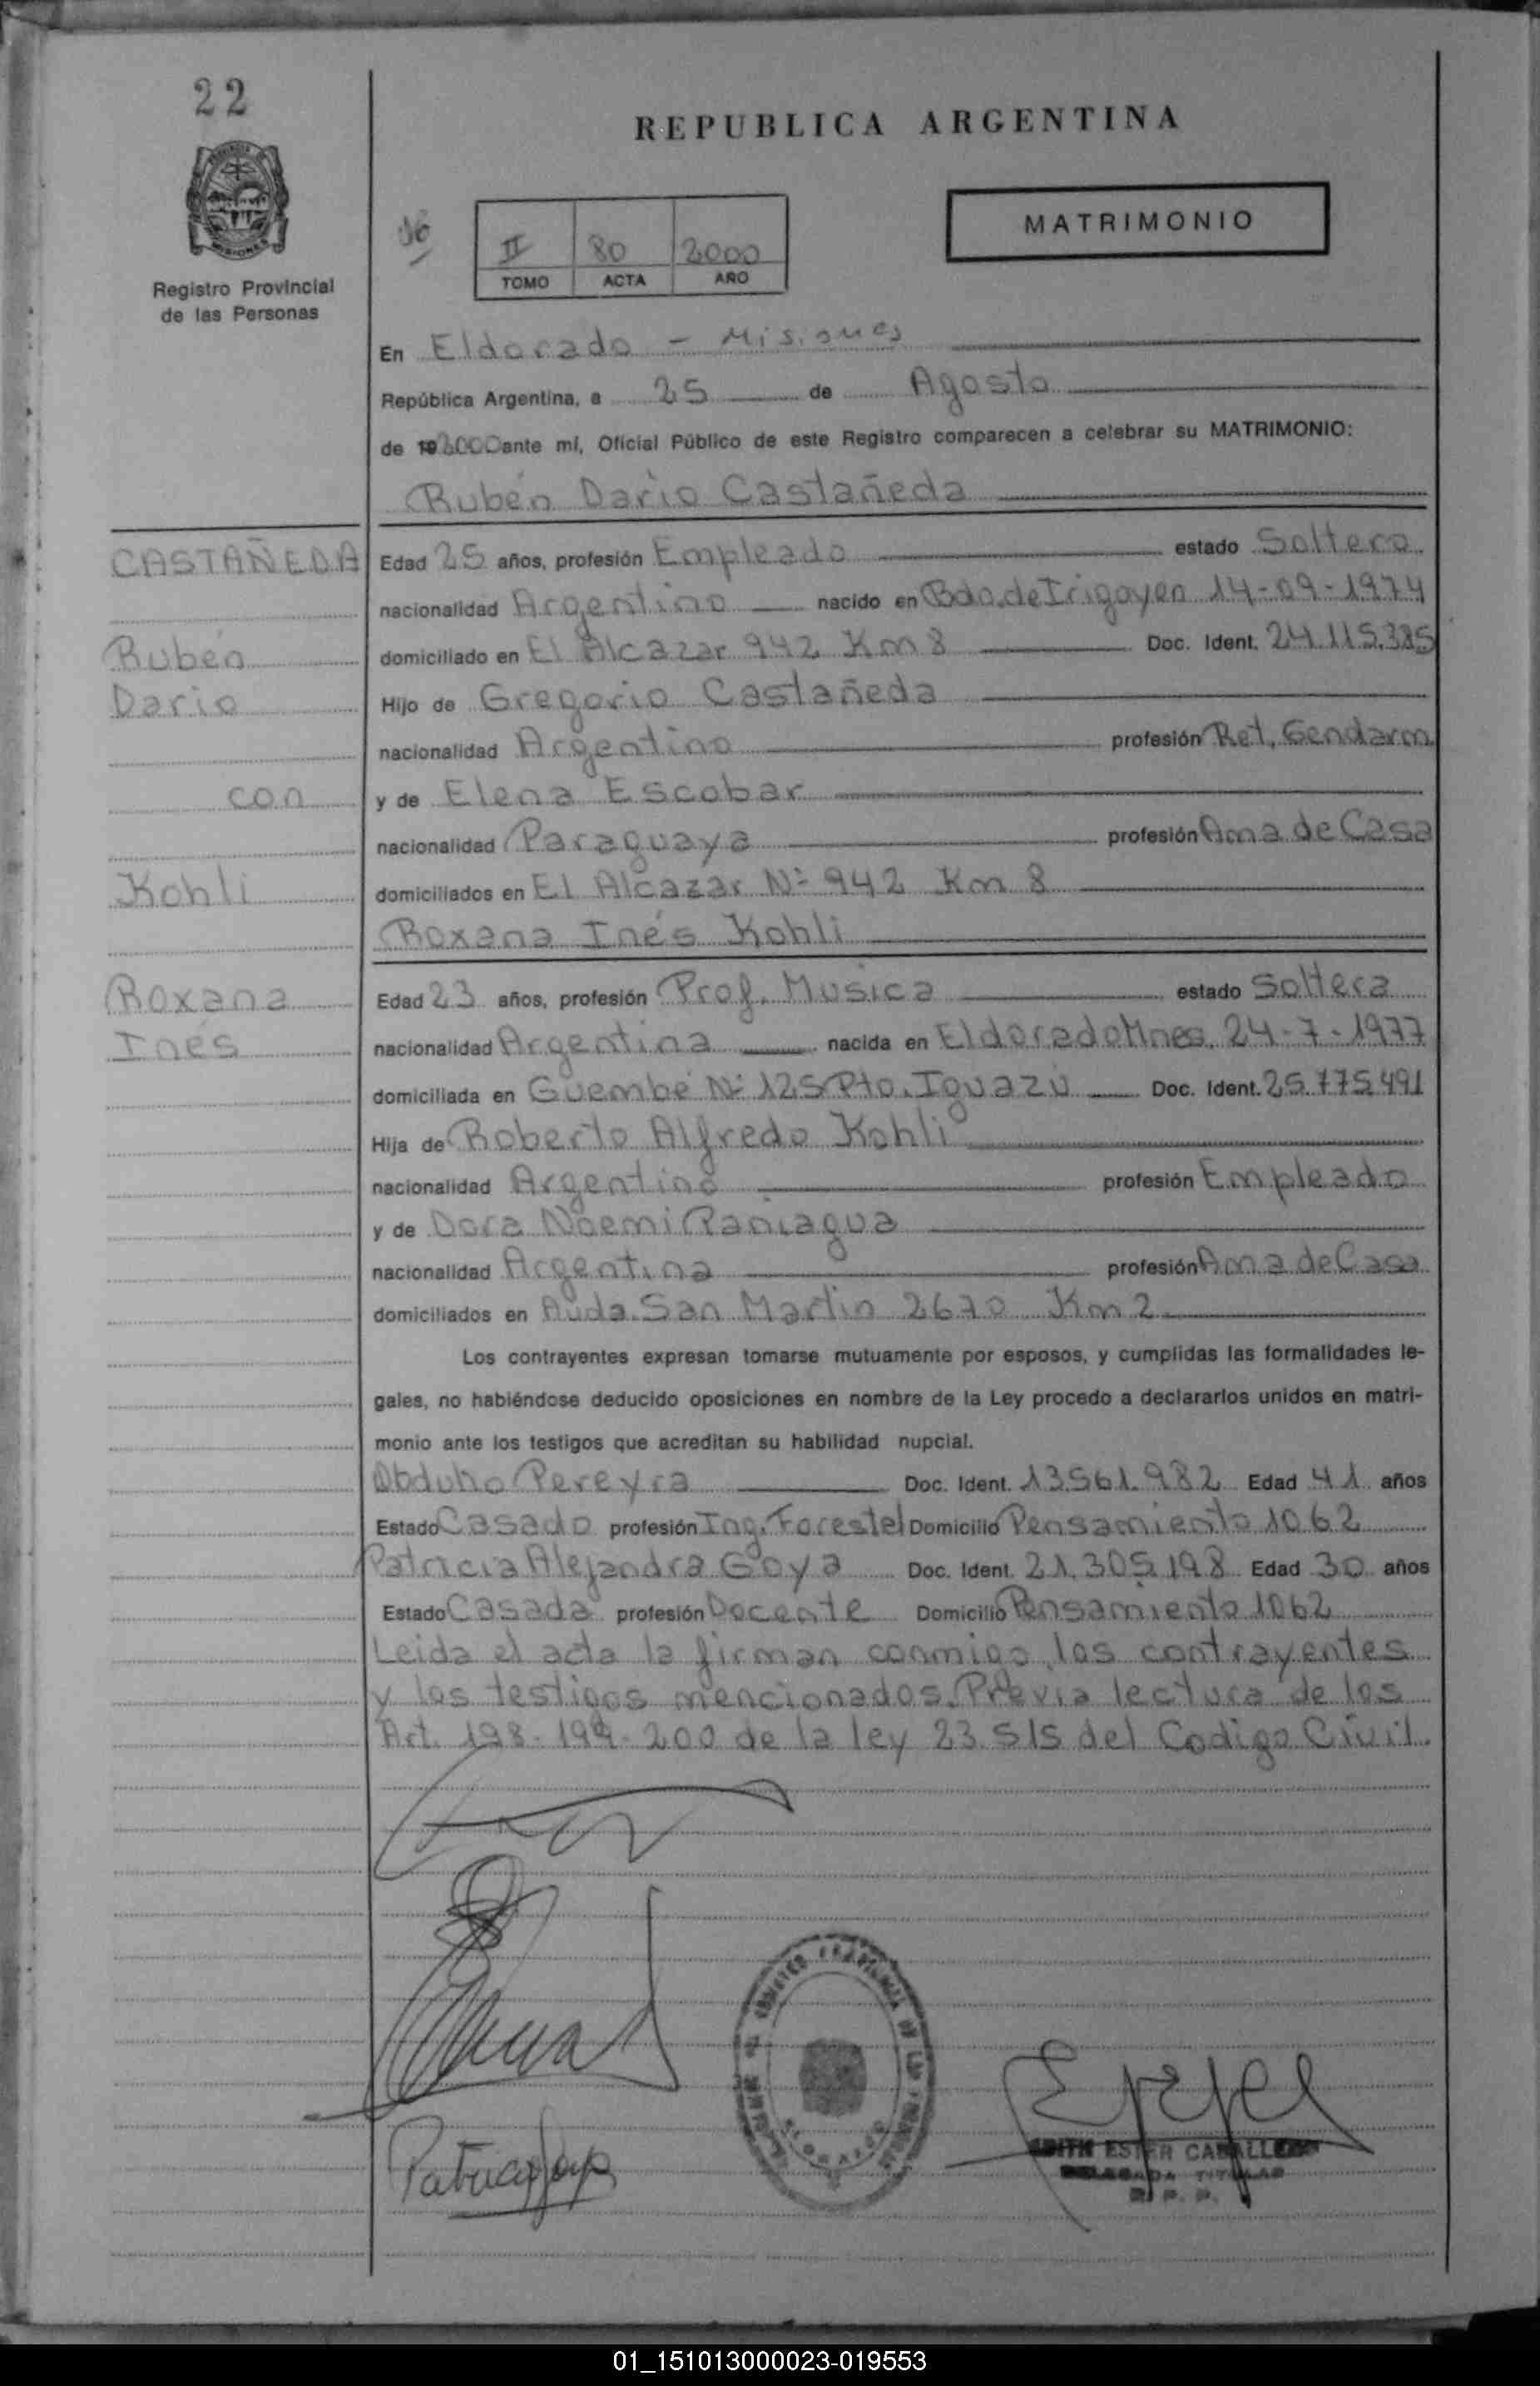 22
REPUBLICA ARGENTINA
MATRIMONIO
II 80 2000
TOMO ACTA AÑO
Registro Provincial
de las Personas
En Eldorado - Misiones
República Argentina, a 25 de Agosto
de 2000 ante mí, Oficial Público de este Registro comparecen a celebrar su MATRIMONIO:
Rubén Dario Castañeda
CASTAÑEDA
Rubén
Dario
con
Kohli
Roxana
Inés
Edad 25 años, profesión Empleado estado Soltero
nacionalidad Argentino nacido en Bdo. de Irigoyen 14-09-1974
domiciliado en El Alcazar 942 Km 8 Doc. Ident. 24.115.385
Hijo de Gregorio Castañeda
nacionalidad Argentino profesión Ret. Gendarm
y de Elena Escobar
nacionalidad Paraguaya profesión Ama de Casa
domiciliados en El Alcazar Nº 942 Km 8
Roxana Inés Kohli
Edad 23 años, profesión Prof. Musica estado Soltera
nacionalidad Argentina nacida en Eldorado Mnes. 24-7-1977
domiciliada en Guembé Nº 125 Pto. Iguazú Doc. Ident. 25.775.491
Hija de Roberto Alfredo Kohli
nacionalidad Argentino profesión Empleado
y de Dora Noemi Paniagua
nacionalidad Argentina profesión Ama de Casa
domiciliados en Avda. San Martin 2670 Km 2
Los contrayentes expresan tomarse mutuamente por esposos, y cumplidas las formalidades le-
gales, no habiéndose deducido oposiciones en nombre de la Ley procedo a declararlos unidos en matri-
monio ante los testigos que acreditan su habilidad nupcial.
Obdulio Pereyra Doc. Ident. 13.561.982 Edad 41 años
Estado Casado profesión Ing. Forestel Domicilio Pensamiento 1062
Patricia Alejandra Goya Doc. Ident. 21.305.198 Edad 30 años
Estado Casada profesión Docente Domicilio Pensamiento 1062
Leida el acta la firman conmigo, los contrayentes
y los testigos mencionados. Previa lectura de los
Art. 198-199-200 de la ley 23.515 del Codigo Civil.
EDITH ESTER CABALLERO
DELEGADA TITULAR
R. P. P.
01_151013000023-019553